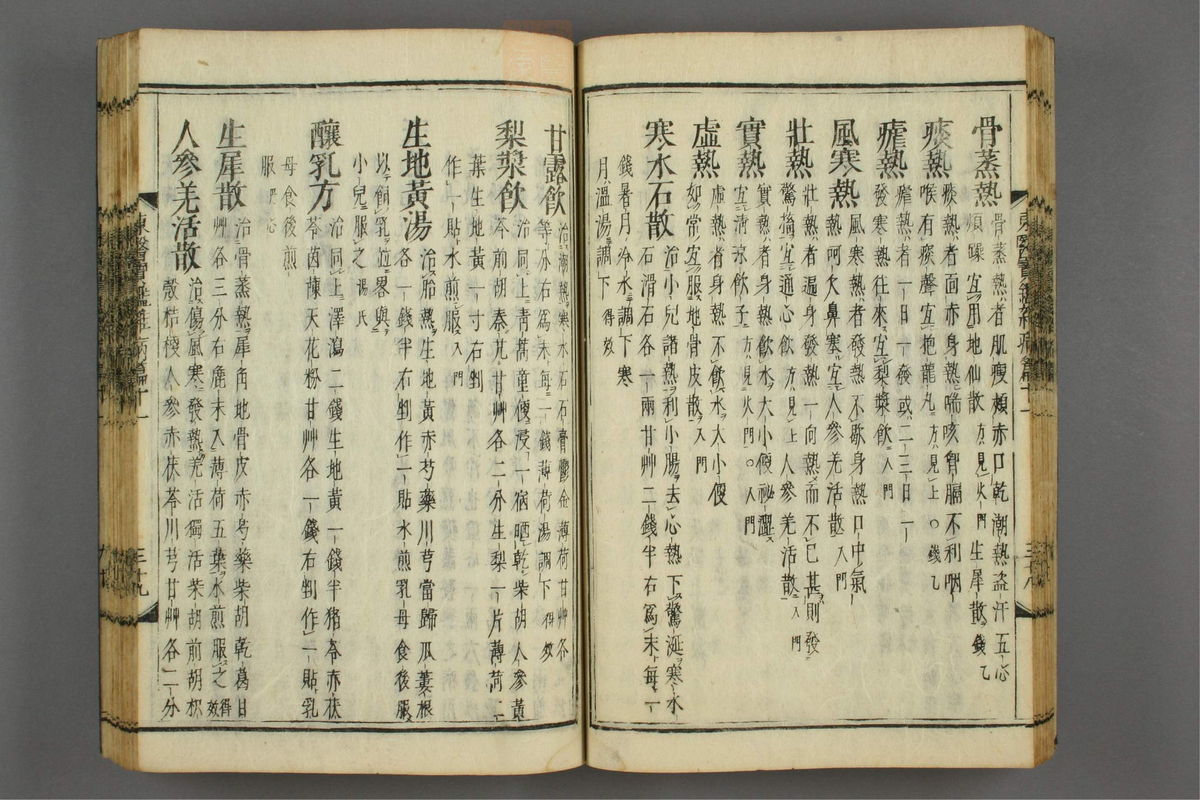 骨蒸熱骨蒸熱者肌瘦頰赤口乾潮熱盗汗五心
煩躁宜用地仙散方見火門生犀散錢乙
痰熱痰熱者面赤身熱喘咳胷膈不利咽
喉有痰聲宜抱龍丸方見上○錢乙
瘧熱瘧熱者一日一發或二三日一
發寒熱往來宜梨漿飲入門
風寒熱風寒熱者發熱不歇身熱口中氣
熱呵欠鼻塞宜人參羌活散入門
壯熱壯熱者遍身發熱一向熱而不已甚則發
驚搐宜通心飲方見上人參羌活散入門
實熱實熱者身熱飲水大小便祕澀
宜清凉飲子方見火門○入門
虛熱虛熱者身熱不飲水大小便
如常宜服地骨皮散入門
寒水石散治小兒諸熱利小腸去心熱下驚涎寒水
石滑石各一兩甘艸二錢半右爲末每一
錢暑月冷水調下寒
月溫湯調下得效
甘露飮治潮熱寒水石石膏鬱金薄荷甘艸各
等分右爲末每二錢薄荷湯調下得效
梨漿飮治同上靑蒿童便浸一宿晒乾柴胡人參黃
芩前胡秦艽甘艸各二分生梨一片薄荷二
葉生地黃一寸右剉
作一貼水煎服入門
生地黃湯治胎熱生地黃赤芍藥川芎當歸瓜蔞根
各一錢半右剉作一貼水煎乳母食後服
以餉乳並畧與
小兒服之湯氏
釀乳方治同上澤瀉二錢生地黃一錢半猪苓赤茯
苓茵蔯天花粉甘艸各一錢右剉作一貼乳
母食後煎
服
生犀散治骨蒸熱犀角地骨皮赤芍藥柴胡乾葛甘
艸各三分右麁末入薄荷五葉水煎服之得效
人參羌活散治傷風寒發熱羌活獨活柴胡前胡枳
殼桔梗人參赤茯苓川芎甘艸各二分
東醫寶鑑雜病篇十一
三十八
東醫寶鑑雜病篇十一
三十九